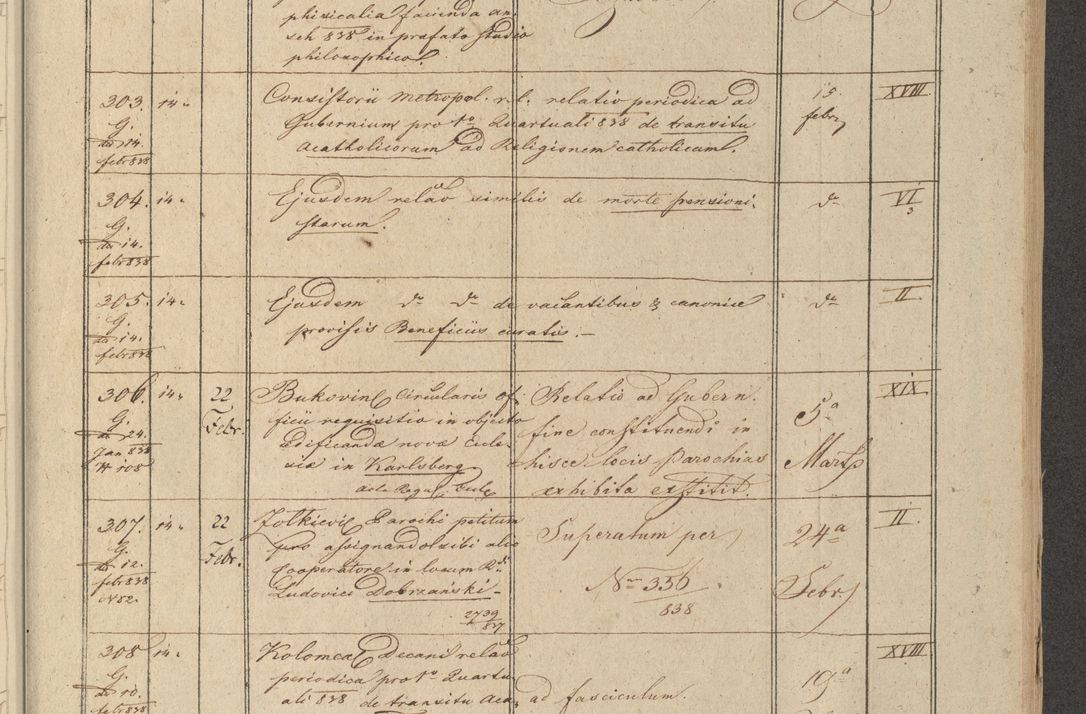 phisicalia facienda an.
sch 838 in prafato studio
philosophico.
303. 14. Consistorii Metropol. r. l. relatio periodica ad 15. XVIII
G. Gubernium pro 1o Quartuali 838 de transitu febr
do 14. Acatholicorum ad Religionem catholicam.
febr 838
304. 14. Ejusdem relao similis de morte pensioni- do VI
G. starum. 3
do 14.
febr 838
305. 14. Ejusdem do do de vacantibus & canonice do II
G. provisis Beneficiis curatis.—
do 14.
febr 838
306. 14. 22 Bukovin Circularis of- Relatio ad Gubern. XIX
G. Febr. ficii requisitio in objecto fine constituendi in 5a
do 24. ædificandæ novæ Eccle- hisce locis Parochias Marti
Jan 838 siæ in Karlsberg exhibita exstitit.
N 108
307. 14. 22 Zolkievi Parochi petitum Superatum per 24a II
G. Febr. pro assignando sibi alio
do 12. Cooperatore in locum Rdi Nro 356 Febr.
febr 838 Ludovici Dobrzański— 838
N 52. 2739
837
308 14. Kolomea Decani relao XVIII
G. periodica pro 1o Quartu- 19a
do 10. ali 838 de transitu Aca- ad fasciculum.
febr 838